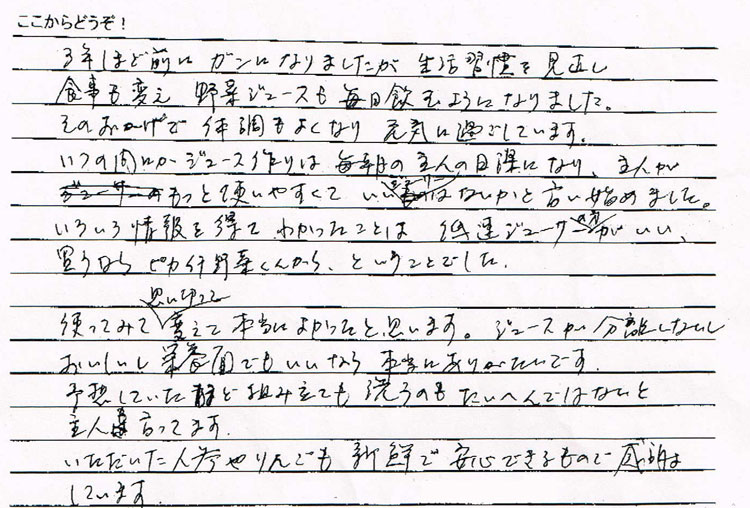 ここからどうぞ！
3年ほど前に ガンになりましたが 生活習慣を見直し
食事も変え 野菜ジュースも毎日飲むようになりました。
そのおかげで 体調もよくなり 元気に過ごしています。
いつの間にかジュース作りは 毎朝の主人の日課になり、主人が
もっと使いやすくて いいジューサーはないかと言い始めました。
いろいろ情報を得て わかったことは 低速ジューサーの方がいい、
買うなら ピカイチ野菜くんから、ということでした。
思い切って
使ってみて 変えて 本当によかったと思います。ジュースが分離しないし
おいしいし 栄養面でもいいなら 本当にありがたいです。
予想していたほど 組み立ても 洗うのも たいへんではないと
主人も言ってます。
いただいた人参やりんごも 新鮮で 安心できるもので 感謝
しています。